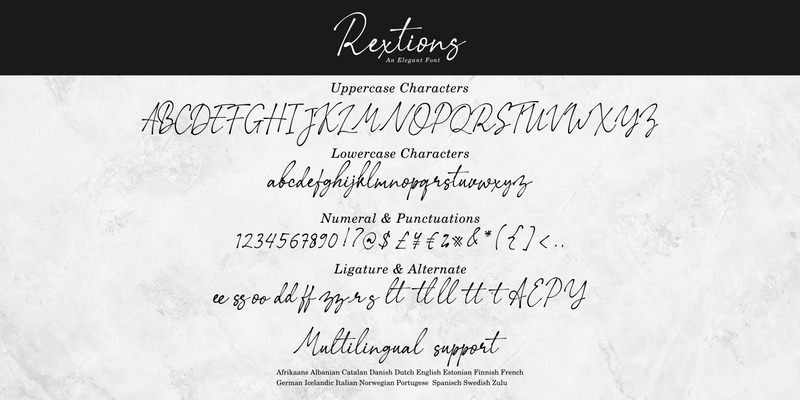 Rextions
An Elegant Font
Uppercase Characters
ABCDEFGHIJKLMNOPQRSTUVWXYZ
Lowercase Characters
abcdefghijklmnopqrstuvwxyz
Numeral & Punctuations
1234567890!?@$£¥€%※&*({]<..
Ligature & Alternate
ee ss oo dd ff zz r s lt tt ll tt t A E P Y
Multilingual support
Afrikaans Albanian Catalan Danish Dutch English Estonian Finnish French
German Icelandic Italian Norwegian Portugese Spanisch Swedish Zulu